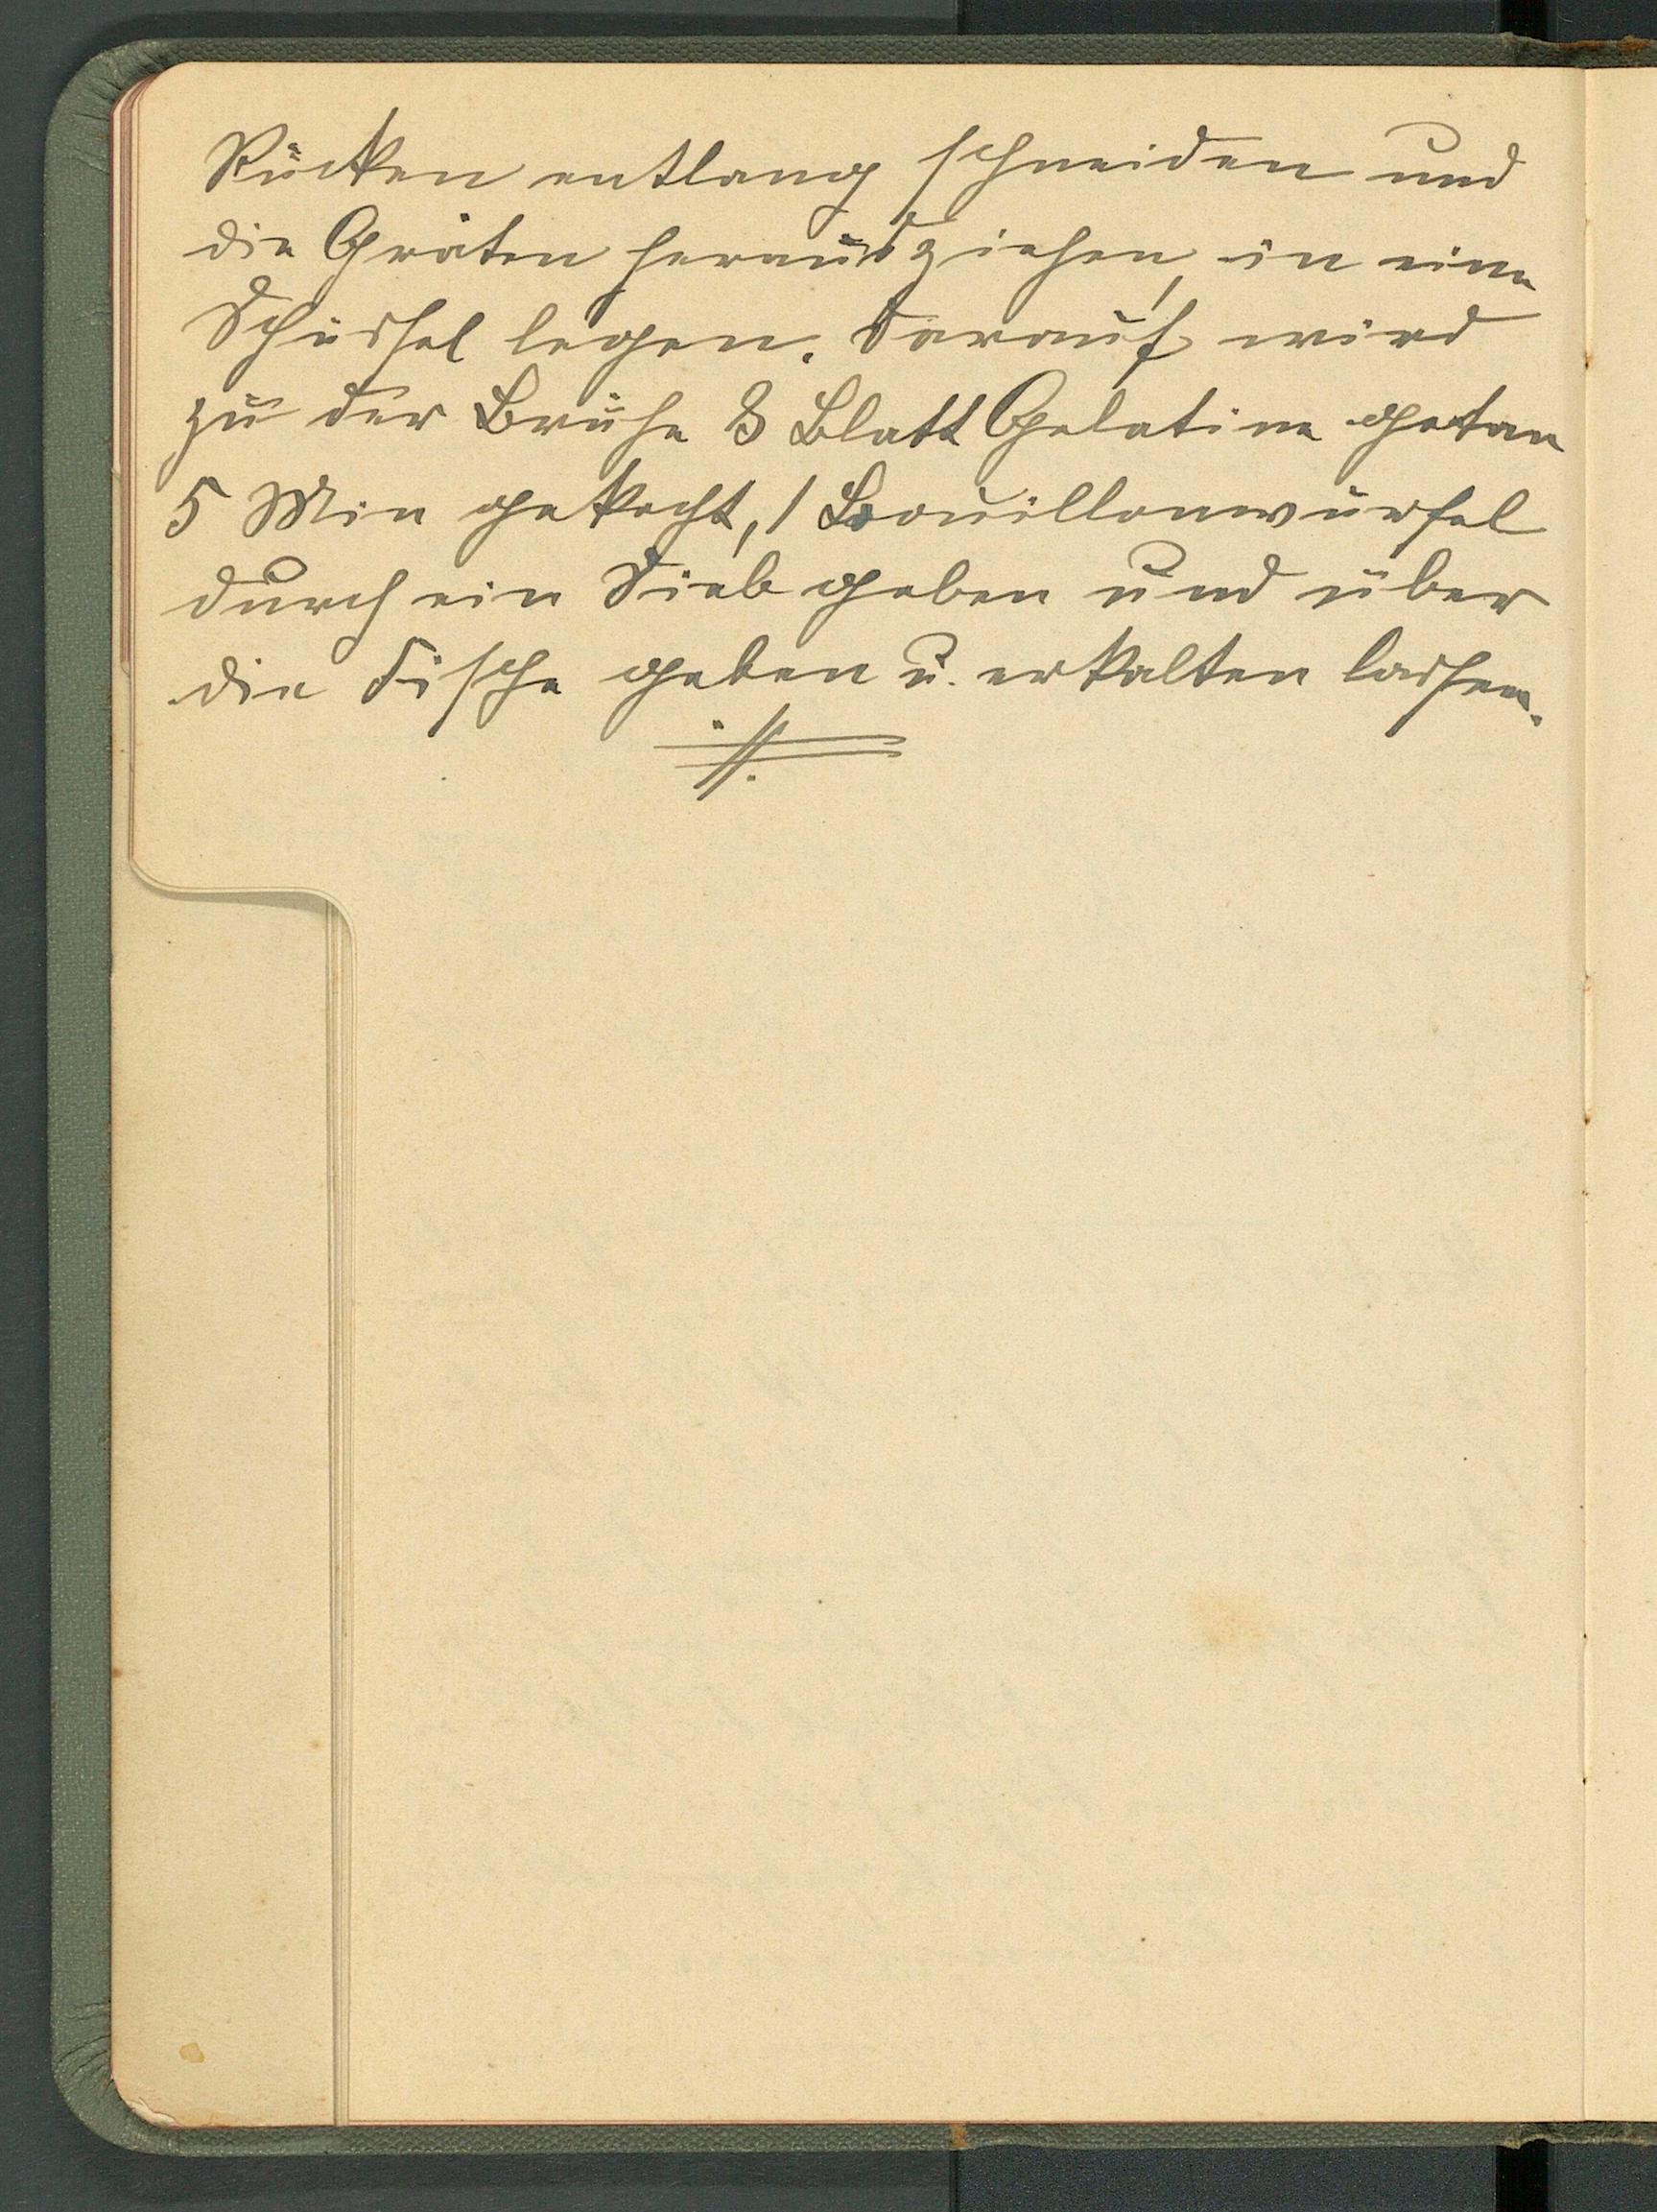 Rücken entlang schneiden und
die Gräten herausziehen, in eine
Schüssel legen. Darauf wird
zu der Brühe 8 Blatt Gelatine getan
5 Min gekocht, 1 Bouillonwürfel
durch ein Sieb geben und über
die Fische geben u. erkalten lassen.